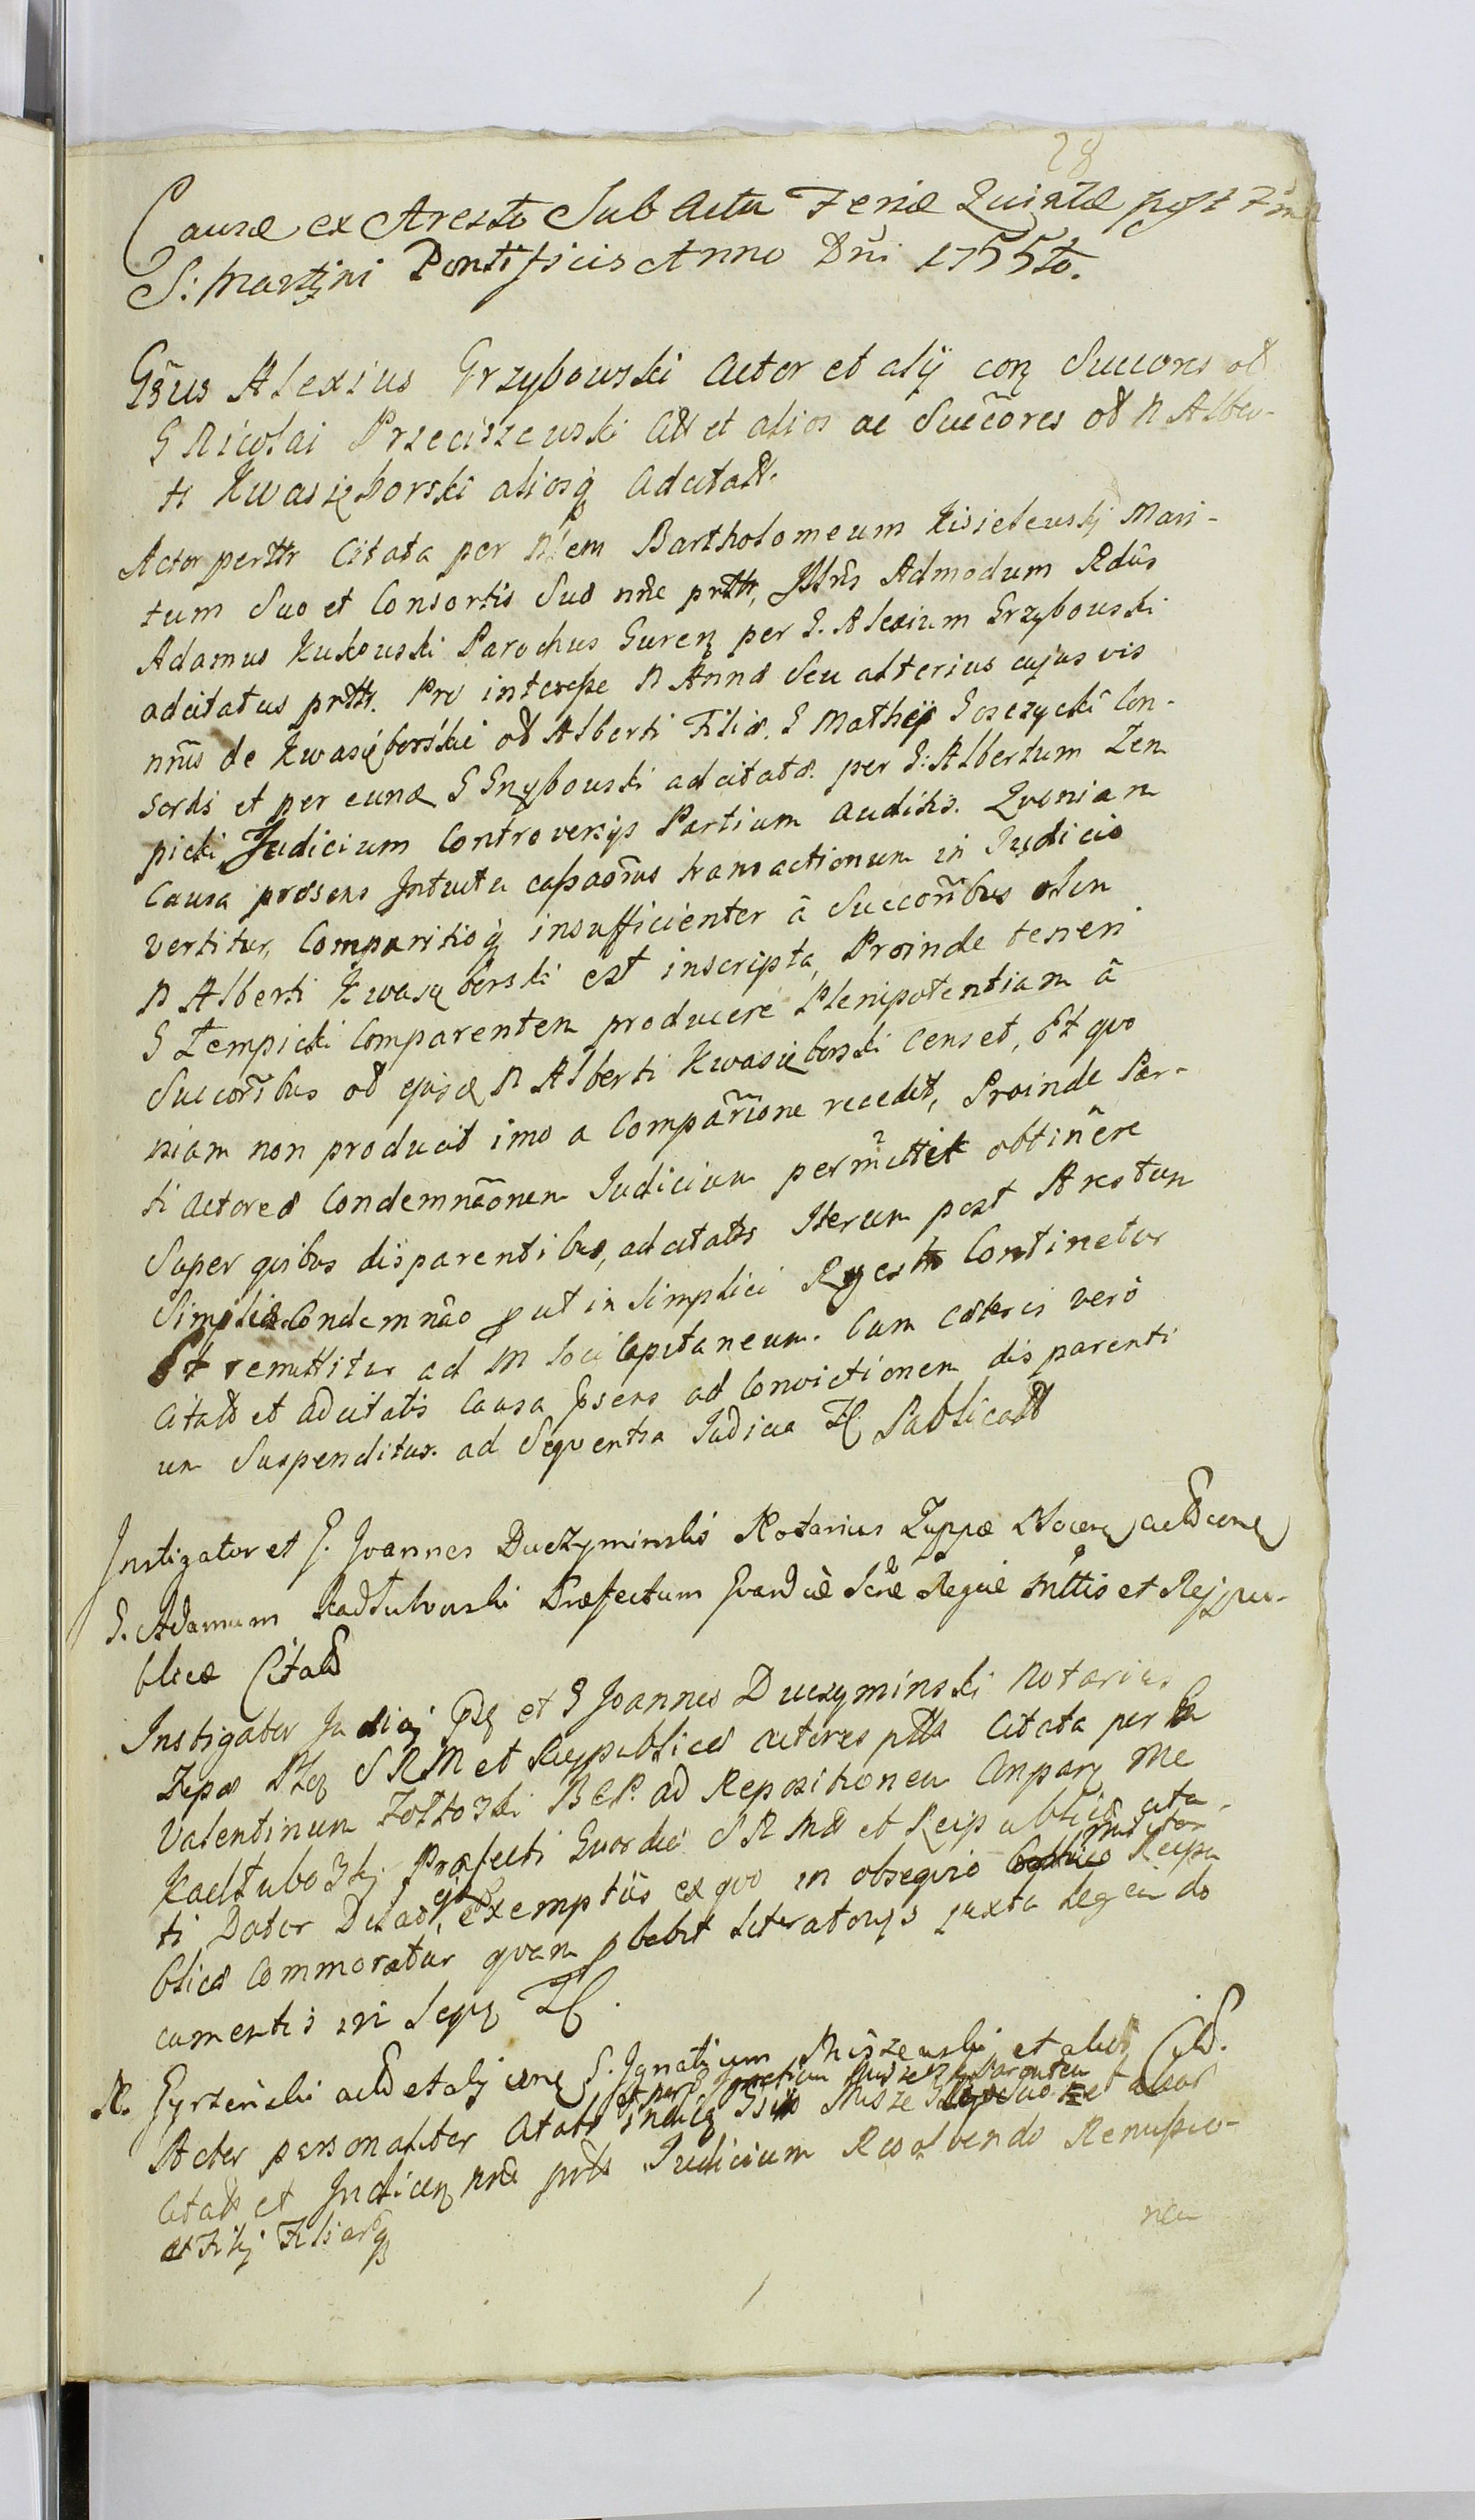 28
Causæ ex Aresto Sub Actu Feriæ Quintæ post
S: Martini Pontificis Anno Dñi 1755to.
Gñus Alexius Grzybowski Actor et alij conͣ Succores oł
G Nicolai Przeciszewski Citt et alios ac Succõres oł N Alber-
ti Kwasięborski aliosq Adcitatt.
Actor perttr Citata per Nłem Bartholomeum Kisielewskj Mari-
tum Suo et Consortis Suæ nñe prttr, Illris Admodum Rdũs
Adamus Kukowski Parochus Guren per G. Alexium Grzybowski
adcitatus prttr. Pro interesse N Annæ Seu alterius cujus vis
nñis de Kwasięborskie oł Alberti Filiæ. G Mathei Goszycki Con-
sortis et per eundͤ G Grzybowski adcitatæ. per G: Albertum Zem
picki Judicium Controversys Partium auditis. Quoniam
Causa præsens Intuitu cassaõnis transactionum in Judicio
vertitur, Comparitioq insufficienter â Succoribus olim
N Alberti Kwasięborski est inscripta, Proinde teneri
G Zempicki Comparentem producere Plenipotentiam â
Succoribus oł ejusd N Alberti Kwasięborski Censet, Et quo
niam non producit imo a Comparõione recedit, Proinde Par-
ti Actoreæ Condemnãonem Judicium permittit obtinere
Super quibus disparentibus, adcitatis Iterum post Arestum
Simplici Condemnão put in Simplici Regestro Continetur
Et remittitur ad M Loci Capitaneum. Cum Cæteris verò
Citatis et adcitatis Causa psens ad Convictionem disparenti
um Suspenditur. ad Sequentia Judicia Publicatt
Instigator et G. Joannes Duczyminski Notarius Zuppæ
G. Adamum Kadłubowski Præfectum Guardiæ Scræ Regiæ Mttis et Rejpu-
blicæ Citatt
Instigator Judicij et G Joannes Duczyminski Notarius
Zupæ SRM et Reypublicæ actores Citata per
Valentinum Zołtoski ad Repositionem
Kadłuboskj Præfecti Guardiæ S R Mtt et Reipublicæ cita-
ti Datur ejus exemptiis ex quo in obsequio Militari Reipu
blicæ Commoratur quam pbabit Literatorys juxta Legem do
cumentis in Seqꝫ
N. Gyrzeński actt et alij conͣ G. Ignatium Miszewski et alios Citt.
et per G Ignatium Miszewski Parentem
Actor personaliter Citati
Citati et Judicium Resolvendo Remissio-
et Filij Filiarq
nem